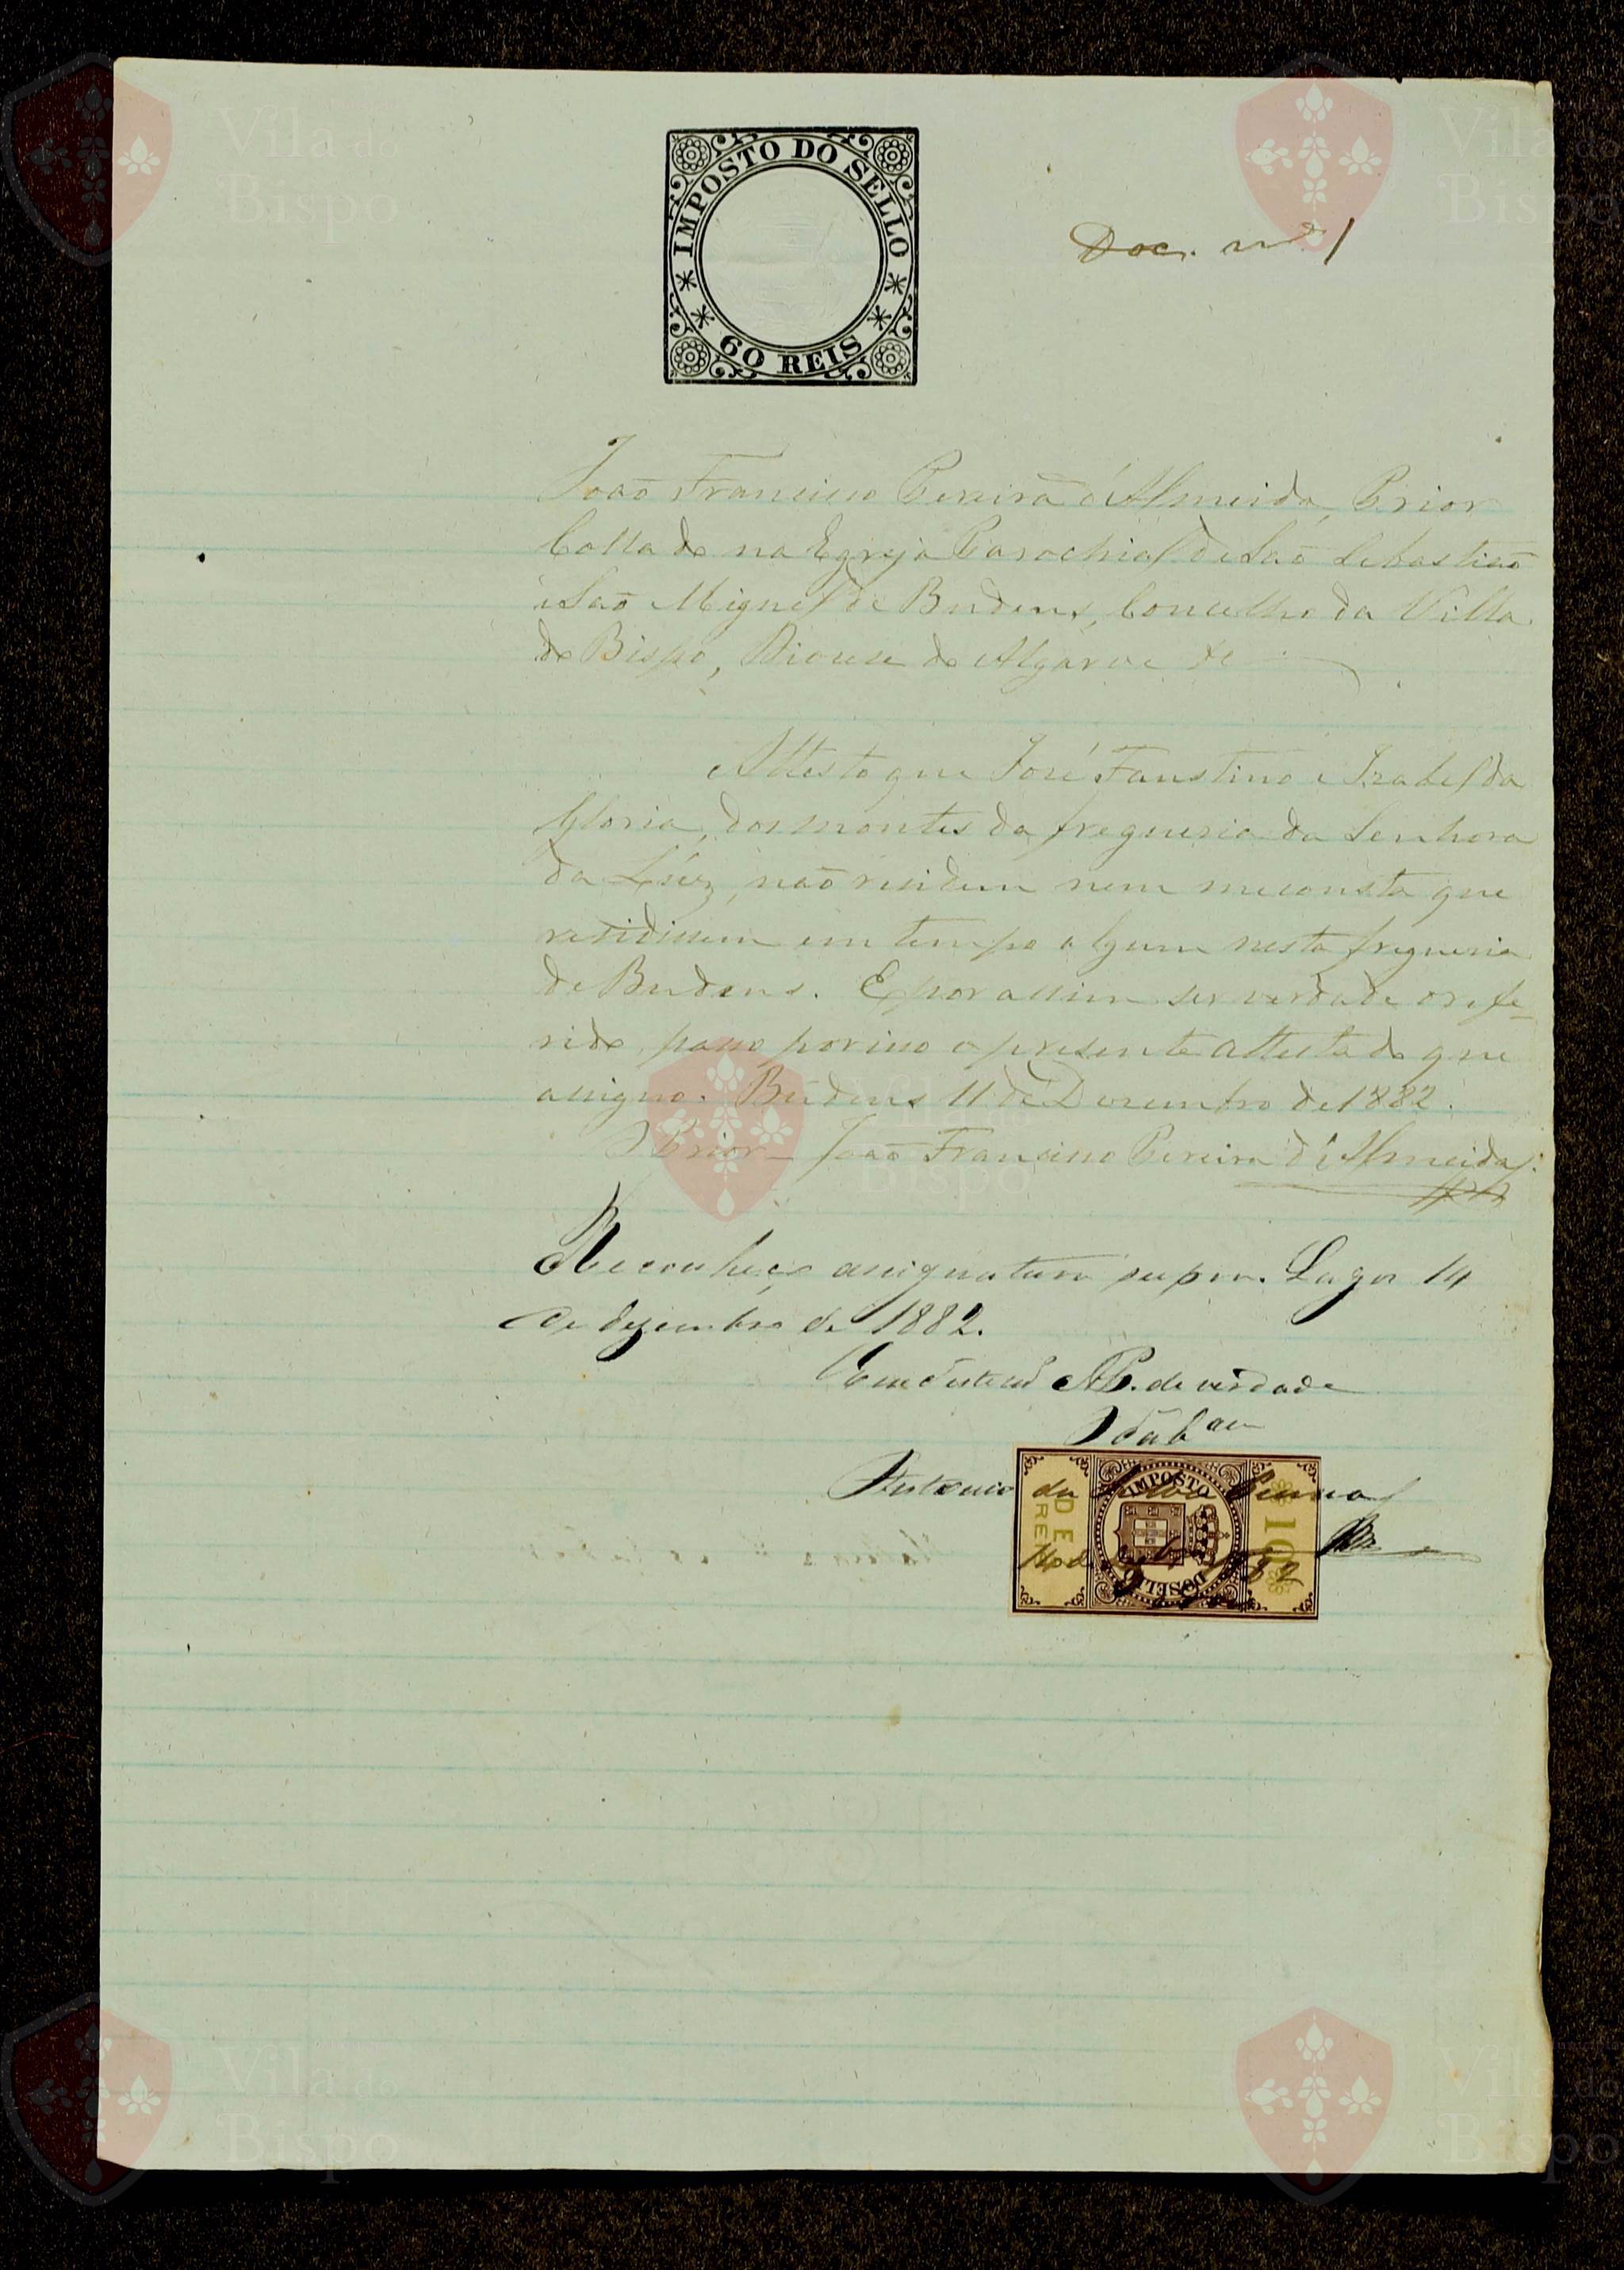 Vila do
Bispo
IMPOSTO DO SELLO
60 REIS
Vila do
Bispo
Doc. nº 1
João Francisco Pereira d'Almeida, Prior
Collado na Egreja Parochial de São Sebastião
e São Miguel de Budens, Concelho da Villa
do Bispo, Diocese do Algarve &c
Attesto que José Faustino e Izabel da
Gloria, dos montes da freguesia da Senhora
da Lúz, não residem nem me consta que
residissem em tempo algum nesta freguesia
de Budens. E por assim ser verdade o refe-
rido, passo por isso o presente attestado que
assigno. Budens 11 de Dezembro de 1882.
O Prior - João Francisco Pereira d'Almeida.
Vila do
Bispo
Reconheço assignatura supra. Lagos 14
de dezembro de 1882.
Em de verdade
O Tab.am
Antonio da
IMPOSTO
DO SELLO
DE
REIS
Vila do
Bispo
Vila do
Bispo